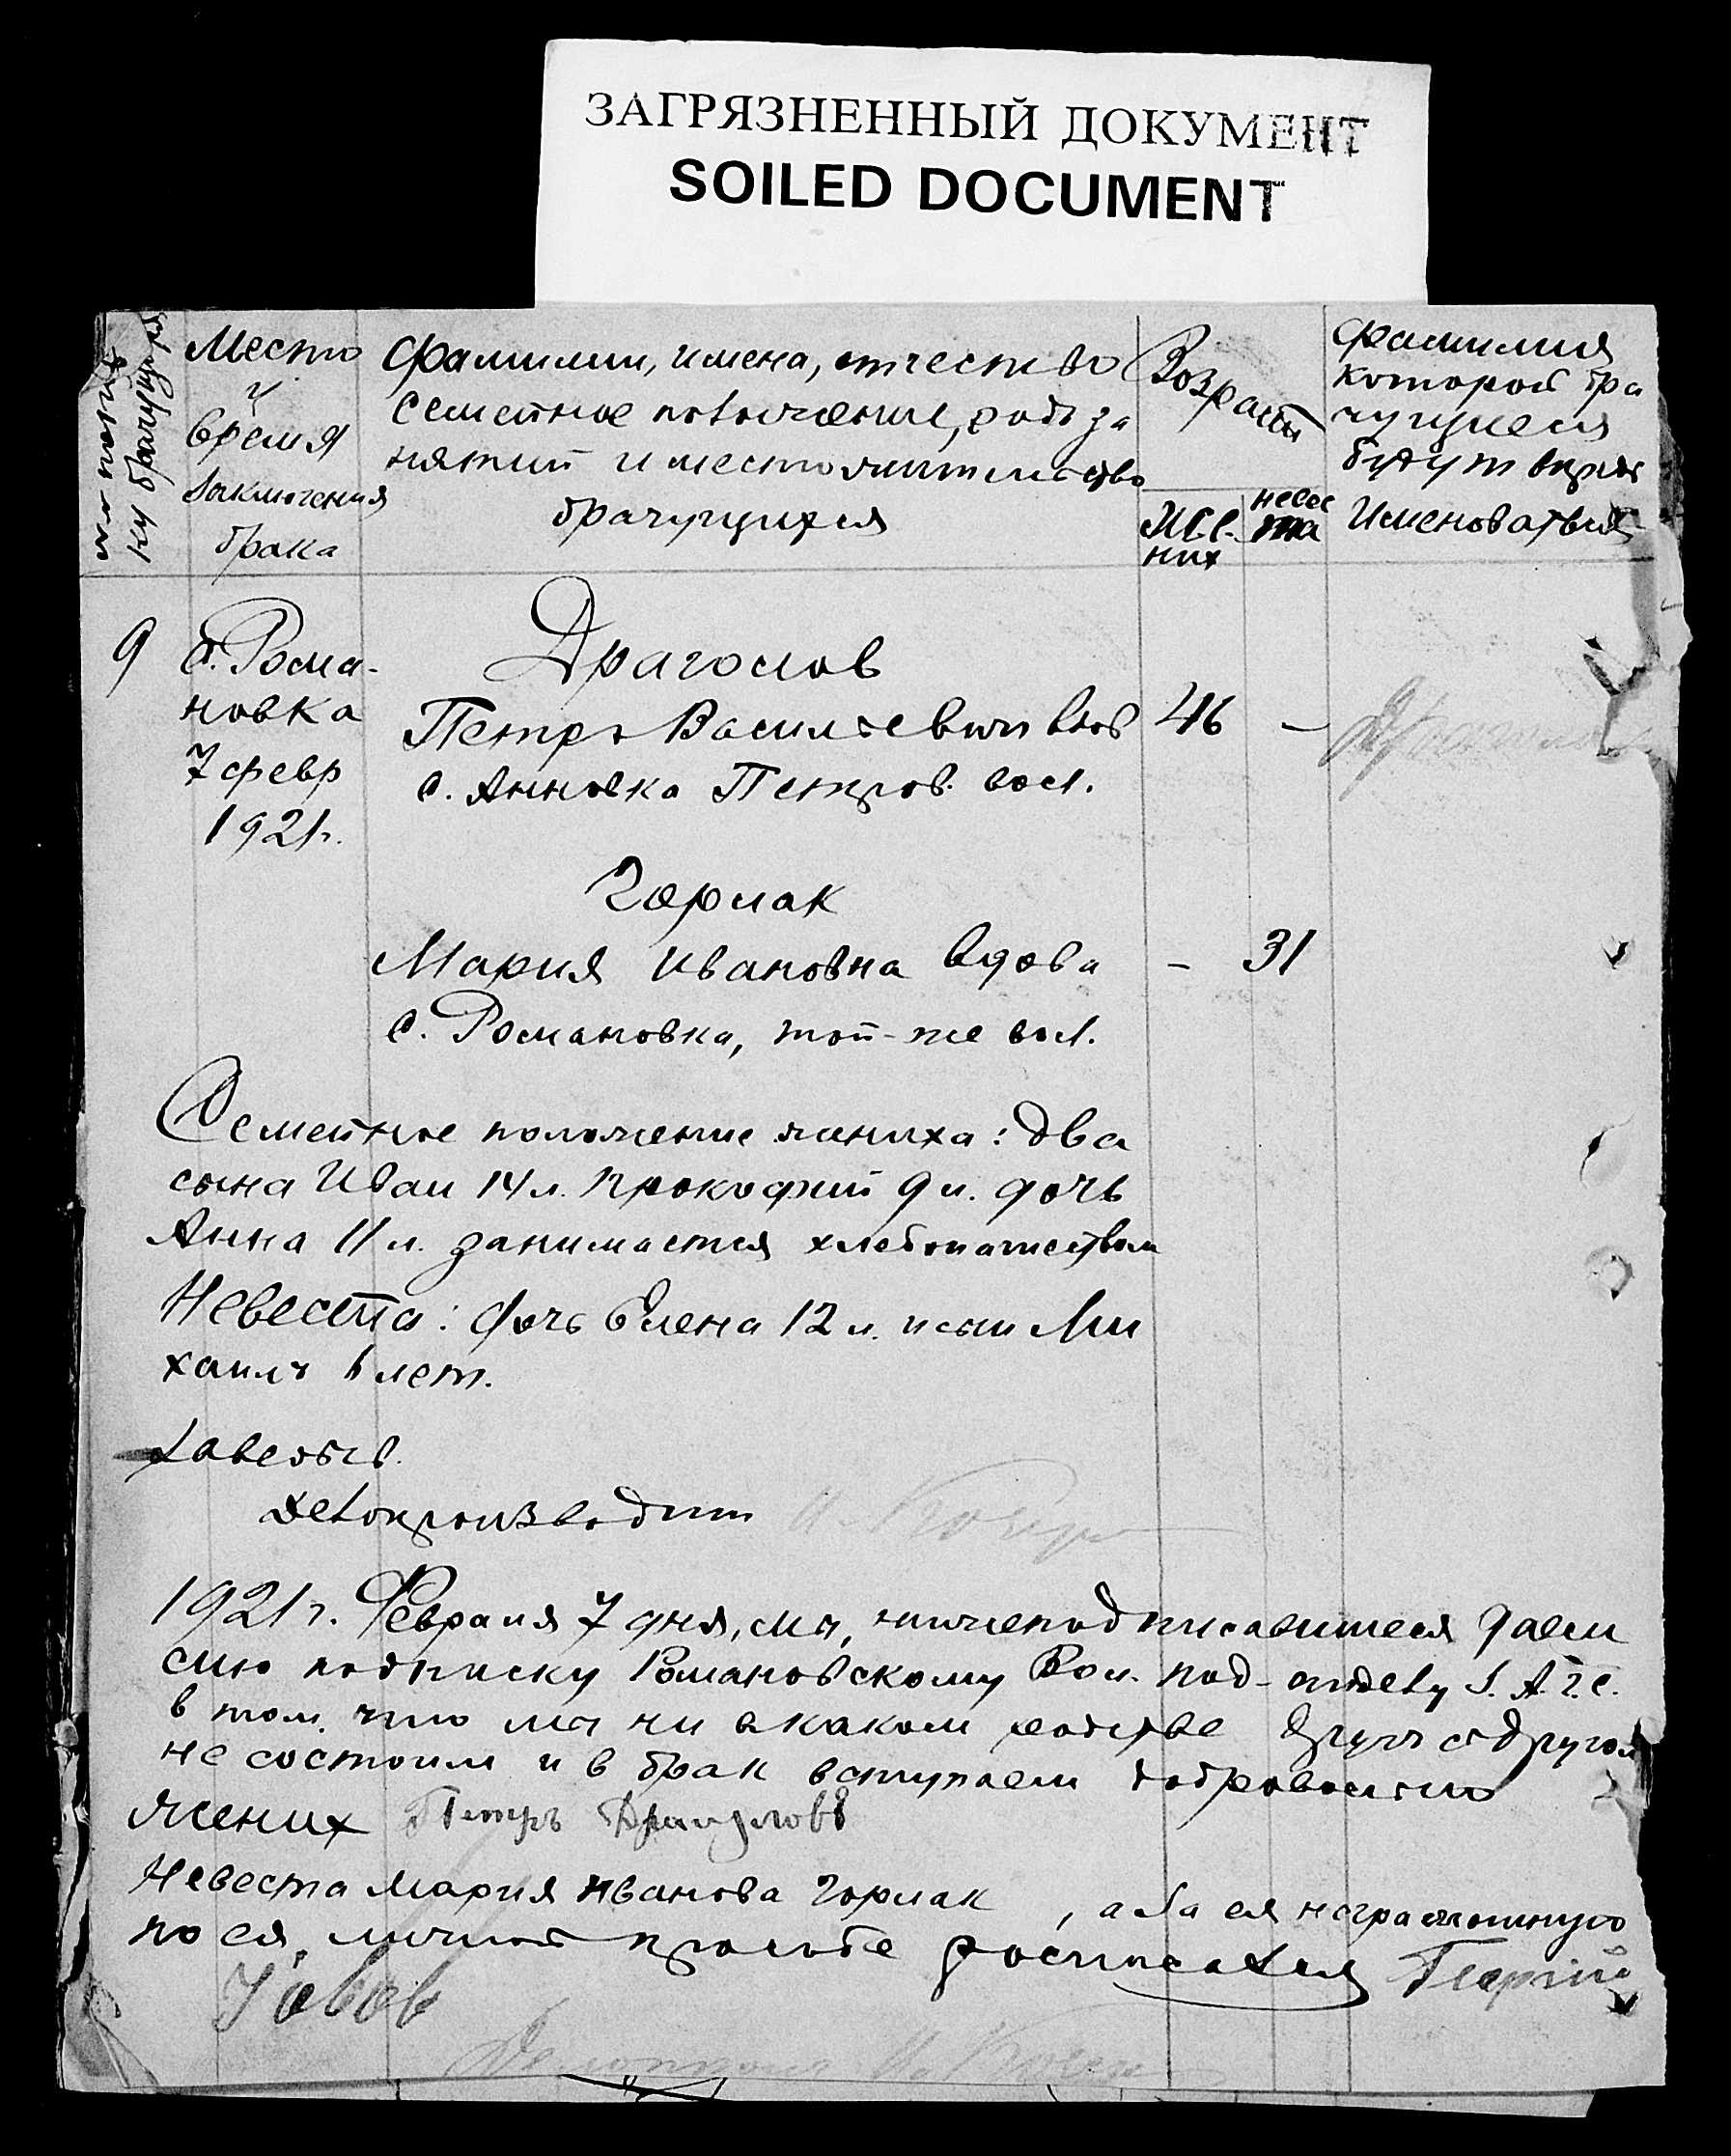 ЗАГРЯЗНЕННЫЙ ДОКУМЕНТ
SOILED DOCUMENT
ку брачущихся
Место
и
время
заключения
брака
Фамилии, имена, отчество
семейное положение, родъ за
нятий и местожительство
брачущихся
Возрастъ
Же-
них
невес
та
Фамилия
которой бра
чущиеся
будут впредь
именоваться
9
с. Рома-
новка
7 февр
1921г.
Драгомов
Петръ Васильевич вдов
с. Анновка Петров. вол.
46
—
Горлак
Мария Ивановна вдова
с. Романовка, той-же вол.
—
31
Семейное положение жениха: два
сына Иван 14 л. Прокофий 9 л. дочь
Анна 11 л. занимается хлебопашеством
Невеста: дочь Елена 12 л. и сын Ми
хаилъ 6 лет.
Завего
Делопроизводит
1921г. Февраля 7 дня, мы, нижеподписавшиеся даем
сию подписку Романовскому Вол. под-отделу З.А.Г.С.
в том, что мы ни в каком родстве друг с другом
не состоим и в брак вступаем добровольно
Жених Петръ
Невеста Мария Иванова Горлак, а за ея неграмотную
по ея личной просьбе росписался Георгий